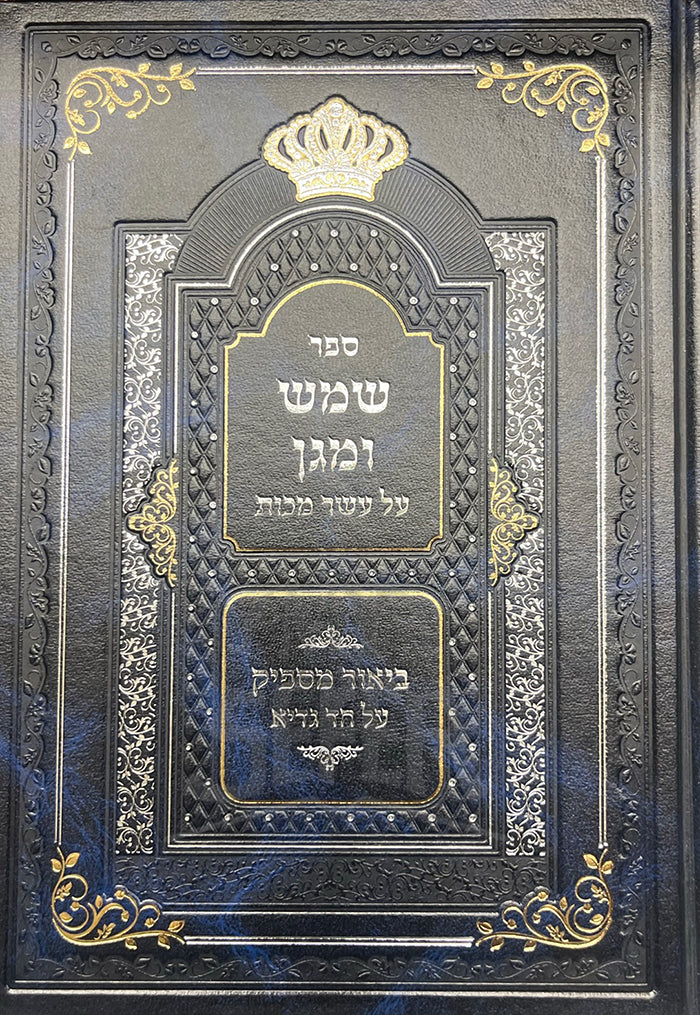 ספר
שמש
ומגן
על עשר מכות
ביאור מספיק
על חד גדיא